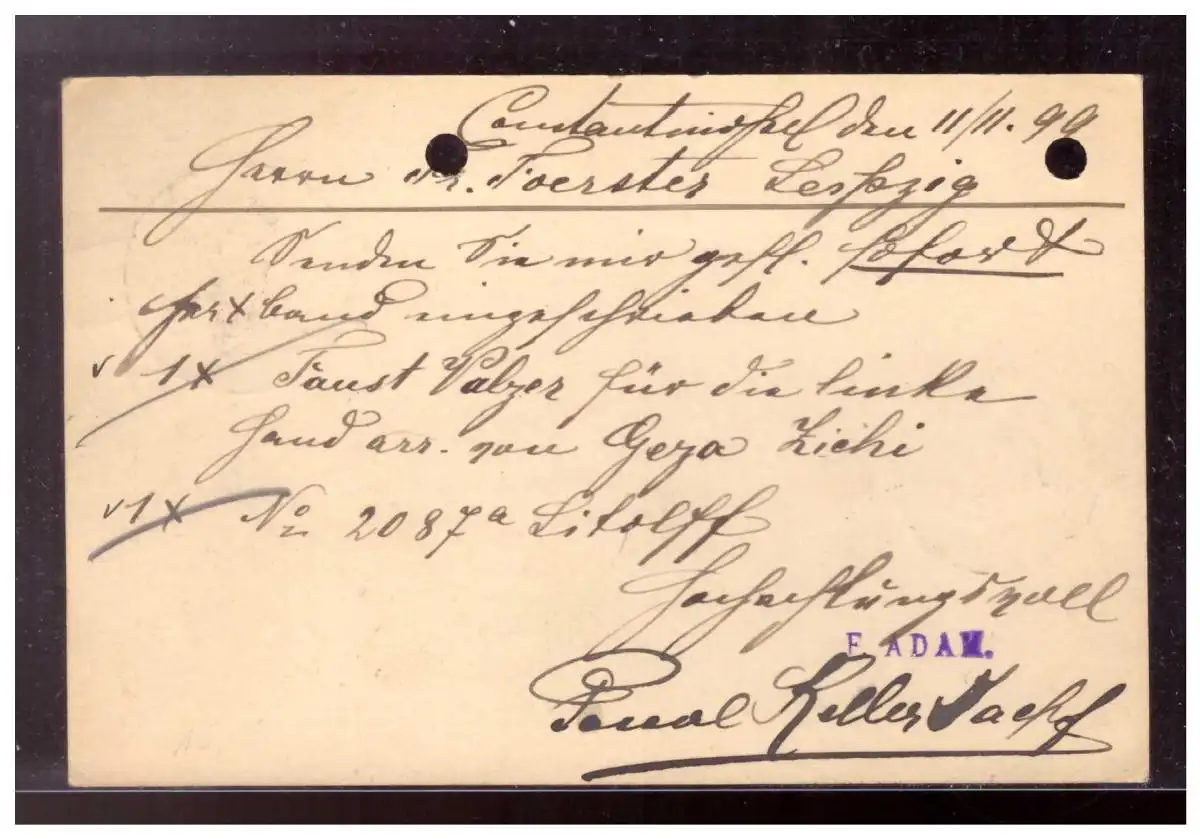 Constantinopel den 11/11. 99
Herrn Fr. Foerster Leipzig
Senden Sie mir gefl. sofort
per x band eingeschrieben
v 1 x Faust Valzer für die linke
Hand arr. von Geza Zichi
v 1 x No 2087a Litolff
Hochachtungsvoll
F. ADAM.
Keller